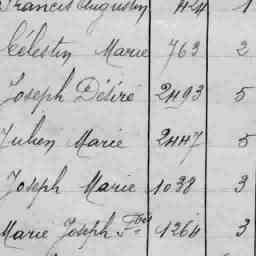 Francis Augustin 424 1
Célestin Marie 763 2
Joseph Désiré 2493 5
Julien Marie 2447 5
Joseph Marie 1038 3
Marie Joseph Fois 1264 3